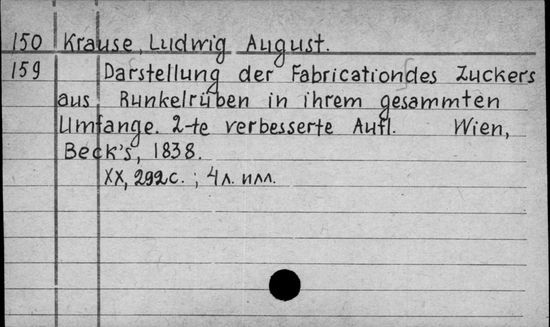 150 Krause, Ludwig August.
159 Darstellung der Fabrication des Zuckers
aus Runkelrüben in ihrem gesammten
Umfange. 2-te verbesserte Aufl. Wien,
Beck's, 1838.
XX, 292 с. ; 4 л. илл.